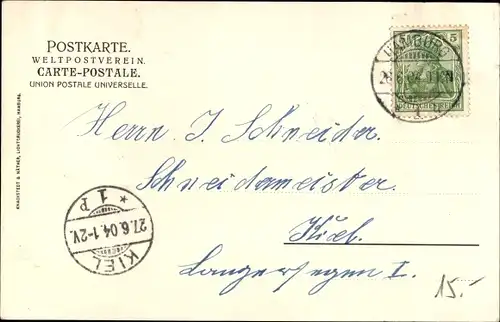 POSTKARTE.
WELTPOSTVEREIN.
CARTE-POSTALE.
UNION POSTALE UNIVERSELLE.
KNACKSTEDT & NÄTHER, LICHTDRUCKEREI, HAMBURG.
HAMBURG
1
5
DEUTSCHES REICH
Herrn J. Schneider.
Schneidermeister.
Kiel.
I.
KIEL
27.6.04.1-2V.
* 1 P
15.-